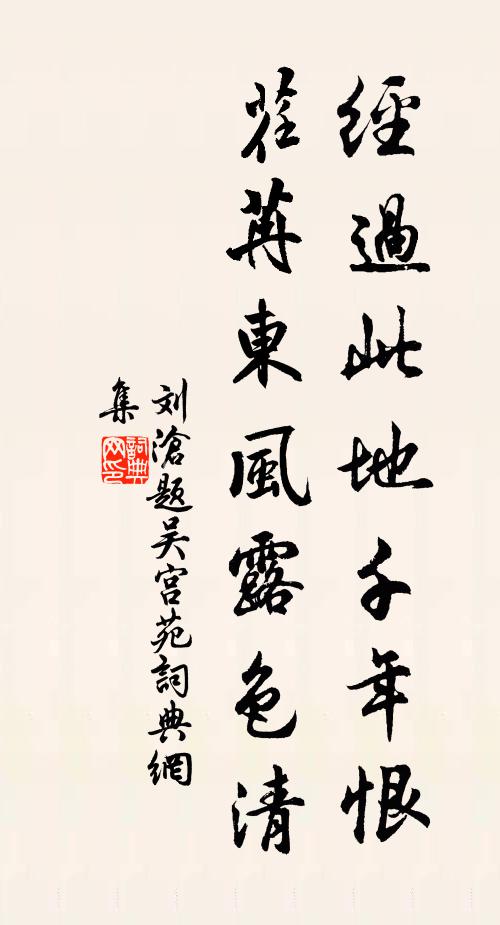 經過此地千年恨
荏苒東風露色清
刘滄題吴宫苑詞典網
集
詞典网印